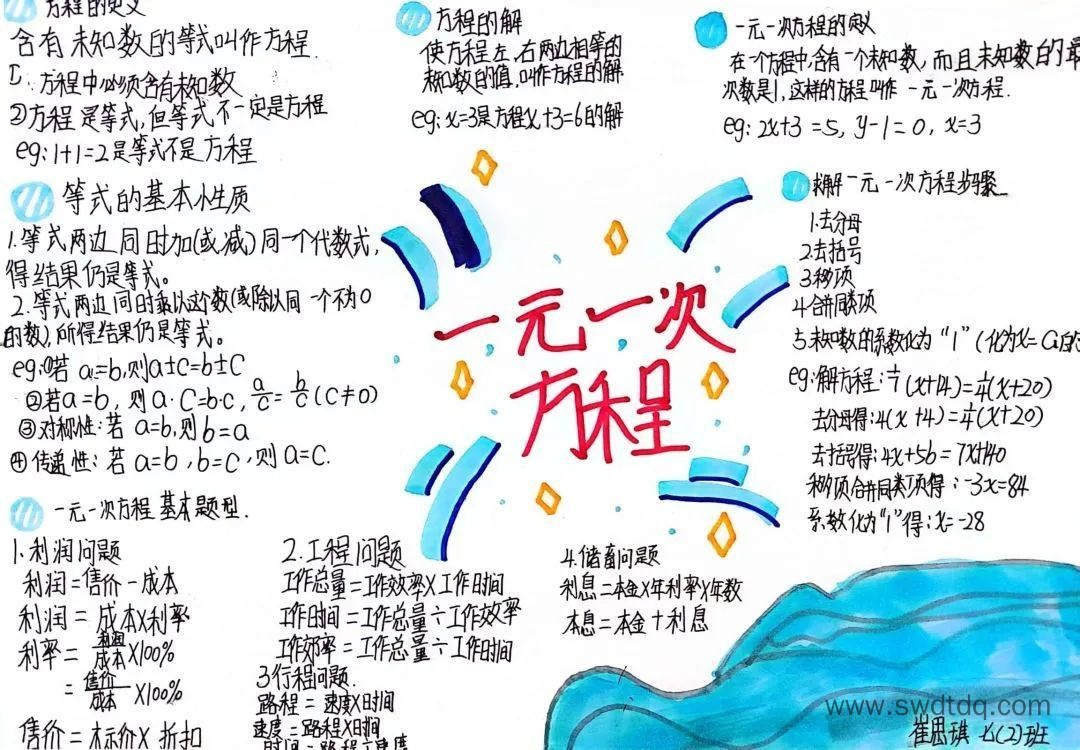 方程的定义
含有未知数的等式叫作方程.
①: 方程中必须含有未知数
②方程是等式,但等式不一定是方程
eg: 1+1=2是等式不是方程
等式的基本性质
1.等式两边同时加(或减)同一个代数式,
得结果仍是等式。
2.等式两边同时乘以这个数(或除以同一个不为0
的数),所得结果仍是等式。
eg:①若a=b,则a±c=b±c
②若a=b, 则a·c=b·c, a/c=b/c (c≠0)
③对称性:若 a=b,则b=a
④传递性: 若a=b,b=c,则a=c.
一元一次方程基本题型.
1.利润问题
利润=售价-成本
利润= 成本×利率
利率= 利润/成本×100%
= 售价/成本 ×100%
售价=标价× 折扣
2.工程问题
工作总量=工作效率×工作时间
工作时间=工作总量÷工作效率
工作效率=工作总量÷工作时间
3行程问题.
路程= 速度×时间
速度=路程×时间
时间=路程÷速度
4.储蓄问题
利息=本金×年利率×年数
本息=本金+利息
方程的解
使方程左、右两边相等的
未知数的值,叫作方程的解
eg: x=3是方程x+3=6的解
一元一次
方程
一元一次方程的定义
在一个方程中,含有一个未知数,而且未知数的最
次数是1,这样的方程叫作 一元一次方程.
eg: 2x+3=5, y-1=0, x=3
求解一元一次方程步骤
1.去分母
2.去括号
3移项
4.合并同类项
5.未知数的系数化为“1”(化为x=a的
eg:解方程: 1/7(x+14)=1/4(x+20)
去分母得:4(x+4)=1/4(x+20)
去括号得:4x+56=7x+140
移项合并同类项得:-3x=84
系数化为“1”得:x=-28
www.swdtdq.com
崔思琪 七(2)班